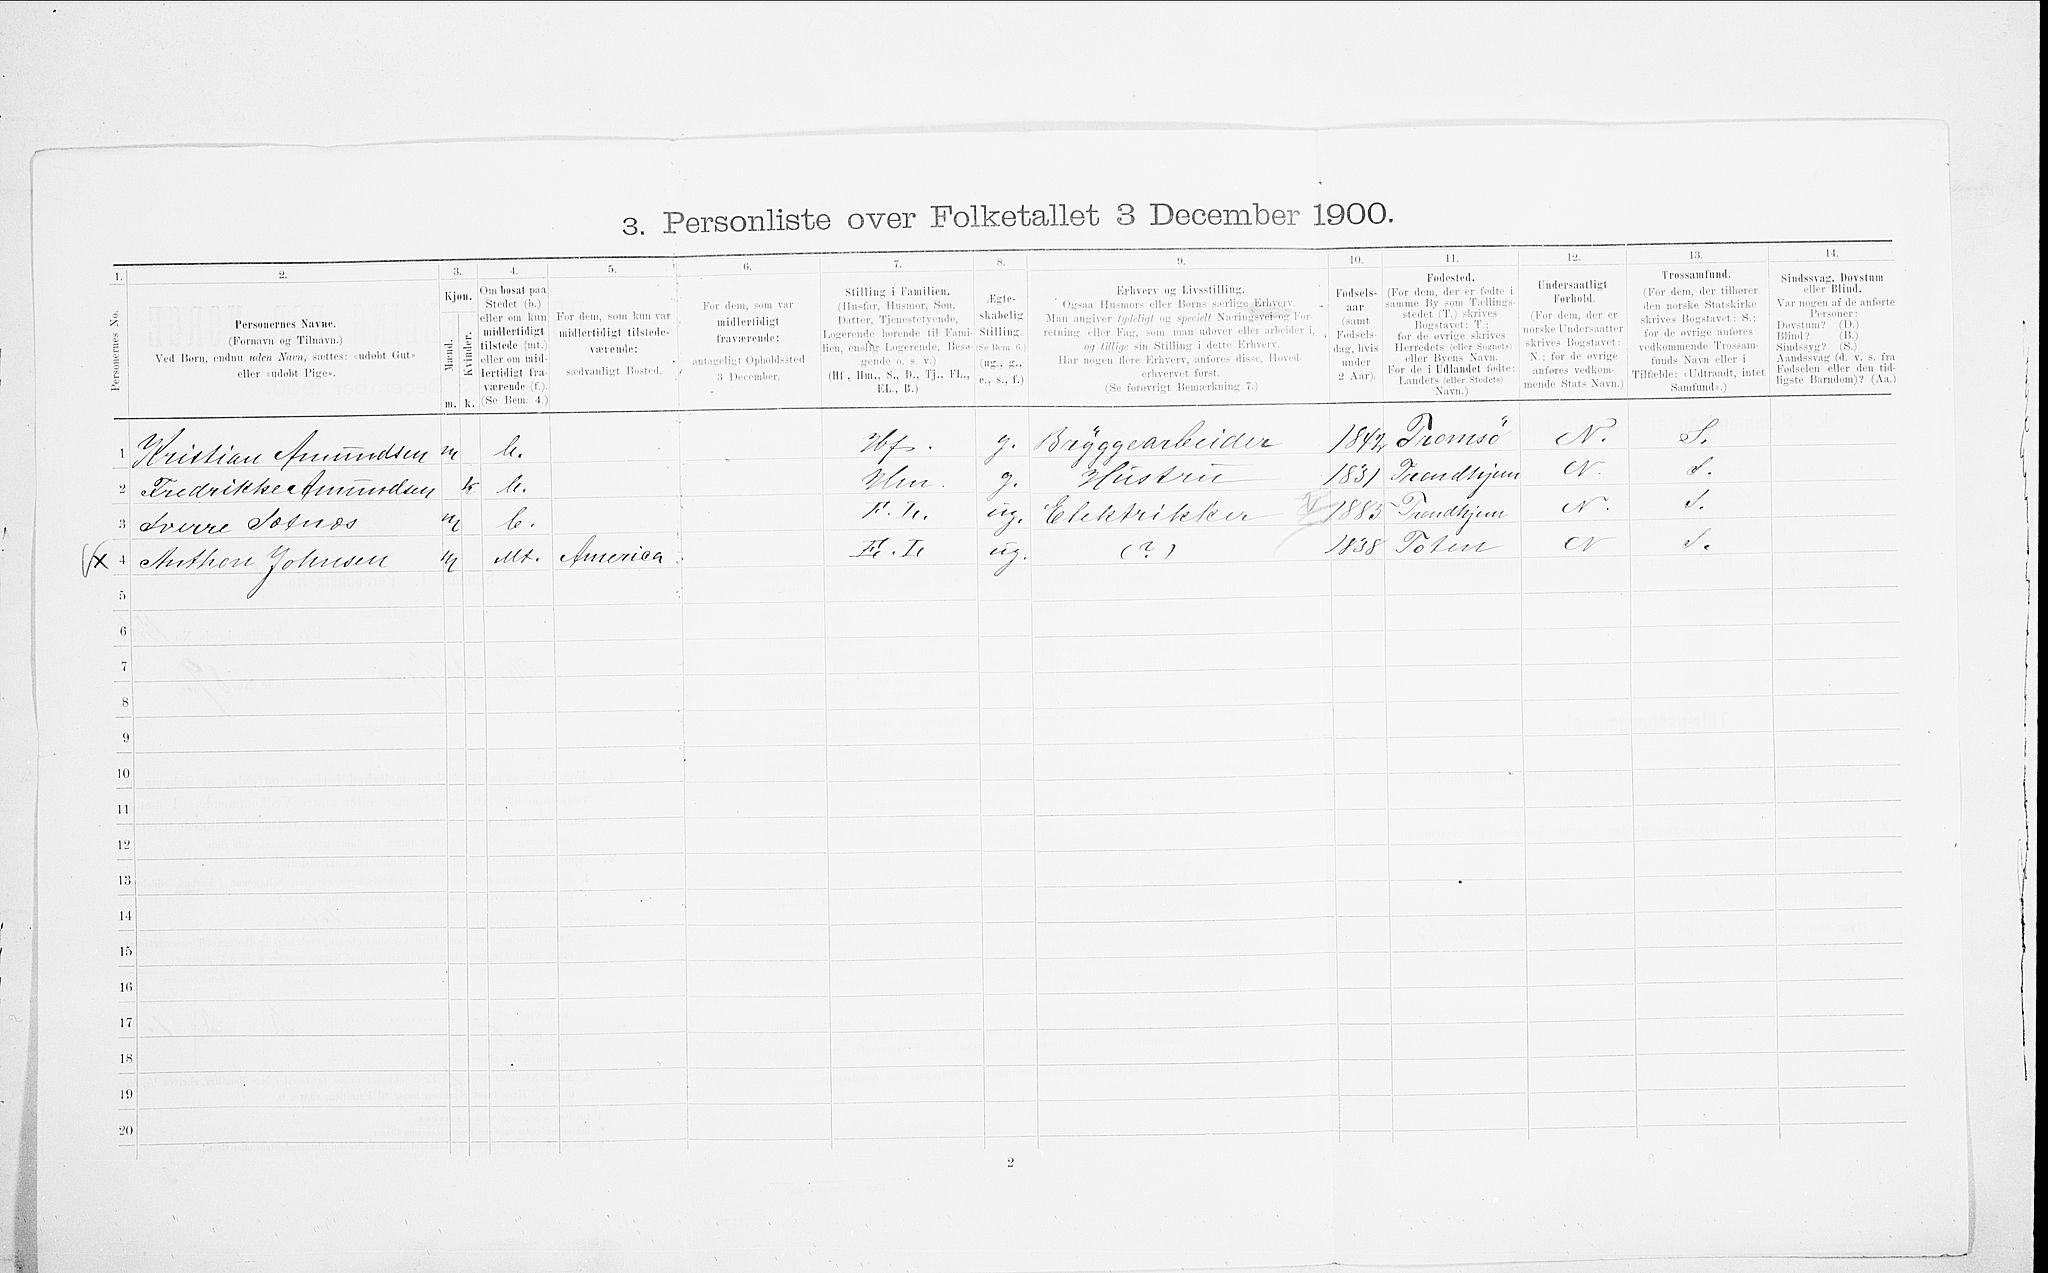 3. Personliste over Folketallet 3 December 1900.
1. 2. 3. 4. 5. 6. 7. 8. 9. 10. 11. 12. 13. 14.
Personernes No.
Personernes Navne.
(Fornavn og Tilnavn.)
Ved Børn, endnu uden Navn, sættes: «udobt Gut»
eller «udobt Pige».
Kjøn.
Mænd.
Kvinder.
m. k.
Om bosat paa
Stedet (b.)
eller om kun
midlertidigt
tilstede (mt.)
eller om mid-
lertidigt fra-
værende (f.).
(Se Bem. 4.)
For dem, som kun var
midlertidigt tilstede-
værende:
sædvanligt Bosted.
For dem, som var
midlertidigt
fraværende:
antageligt Opholdssted
3 December.
Stilling i Familien.
(Husfar, Husmor, Søn,
Datter, Tjenestetyende,
Logerende hørende til Fami-
lien, enslig Logerende, Besø-
gende o. s. v.)
(Hf., Hm., S., D., Tj., FL.,
EL., B.)
Ægte-
skabelig
Stilling.
(Se Bem. 6.)
(ug., g.,
e., s., f.)
Erhverv og Livsstilling.
Ogsaa Husmors eller Børns særlige Erhverv.
Man angiver tydeligt og specielt Næringsvei og For-
retning eller Fag, som man udøver eller arbeider i,
og tillige sin Stilling i dette Erhverv.
Har nogen flere Erhverv, anføres disse, Hoved-
erhvervet først.
(Se forøvrigt Bemærkning 7.)
Fødsels-
aar
(samt
Fødsels-
dag, hvis
under
2 Aar).
Fødested.
(For dem, der er fødte i
samme By som Tællings-
stedet (T.) skrives
Bogstavet: T.;
for de øvrige skrives
Herredets (eller Sognets)
eller Byens Navn.
For de i Udlandet fødte:
Landets (eller Stedets)
Navn.)
Undersaatligt
Forhold.
(For dem, der er
norske Undersaatter
skrives Bogstavet:
N.; for de øvrige
anføres vedkom-
mende Stats Navn.)
Trossamfund.
(For dem, der tilhører
den norske Statskirke
skrives Bogstavet: S.;
for de øvrige anføres
vedkommende Trossam-
funds Navn eller i
Tilfælde: «Udtraadt, intet
Samfund».)
Sindssvag, Døvstum
eller Blind.
Var nogen af de anførte
Personer:
Døvstum? (D.)
Blind? (B.)
Sindssyg? (S.)
Aandssvag (d. v. s. fra
Fødselen eller den tid-
ligste Barndom)? (Aa.)
1 Kristian Amundsen m b. Hf. g. Bryggearbeider 1842 Tromsö N. S.
2 Fredrikke Amundsen k b. Hm. g. Hustru 1831 Trondhjem N. S.
3 Sverre Sætnæs m b. F. L. ug. Elektrikker 1885 Trondhjem N. S.
4 Anthon Johnsen m Mt. America ug. (?) 1838 Toten N S.
5
6
7
8
9
10
11
12
13
14
15
16
17
18
19
20
2